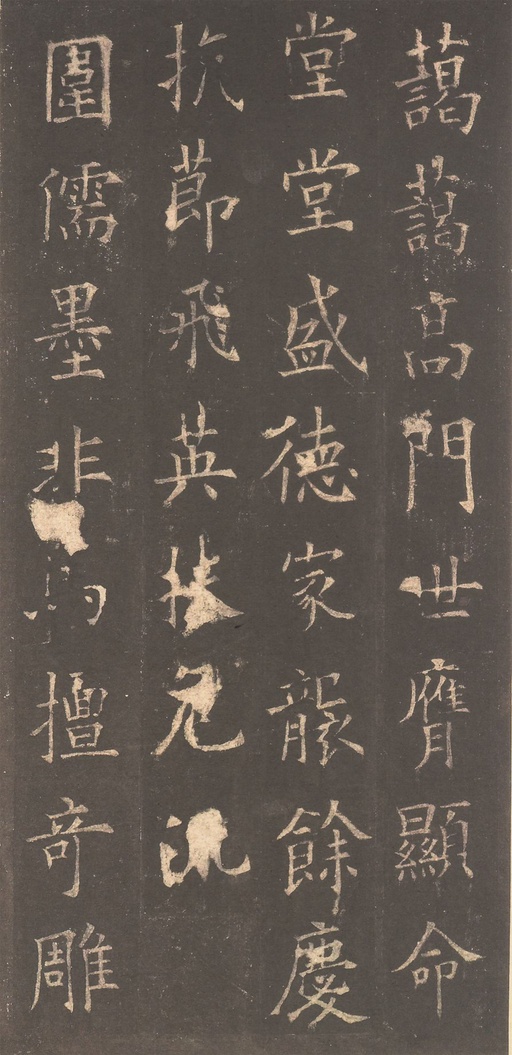 藹藹高門世膺顯命
堂堂盛德家襲餘慶
抗節飛英
圍儒墨非擅奇雕